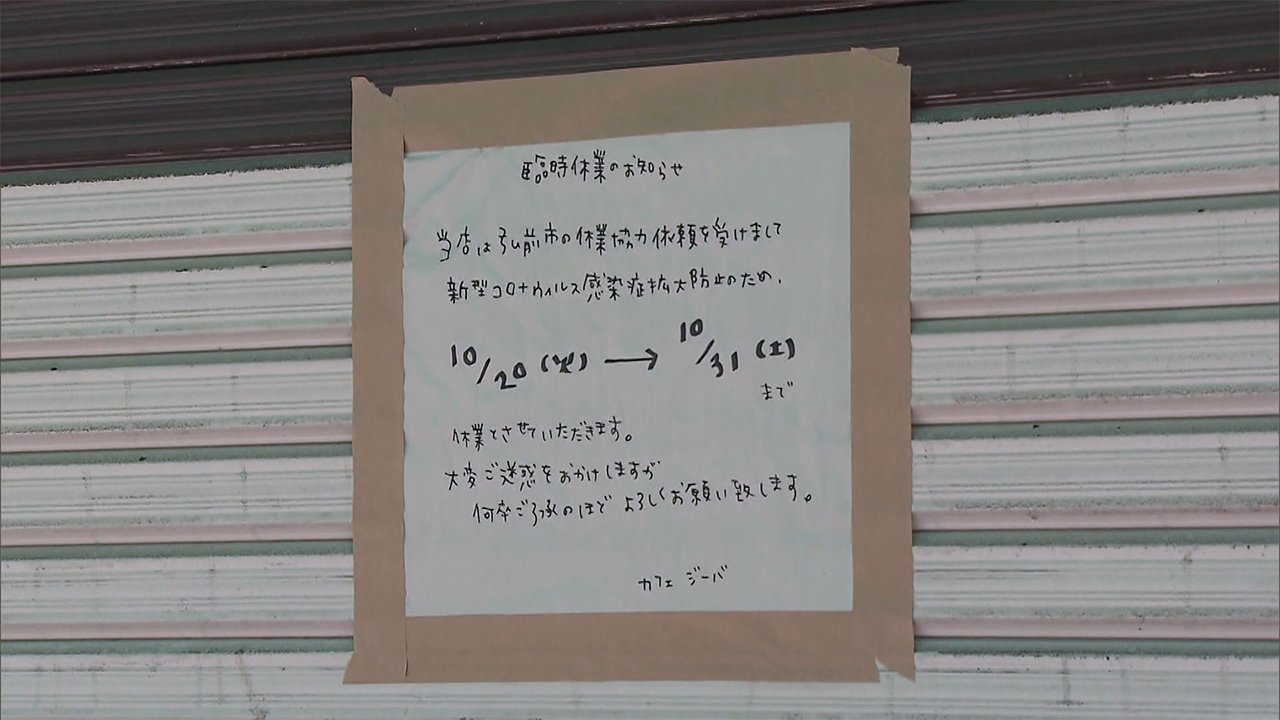 臨時休業のお知らせ
当店は弘前市の休業協力依頼を受けまして
新型コロナウィルス感染症拡大防止のため、
10/20(火) → 10/31(土)
まで
休業とさせていただきます。
大変ご迷惑をおかけしますが
何卒ご了承のほどよろしくお願い致します。
カフェ ジーバ